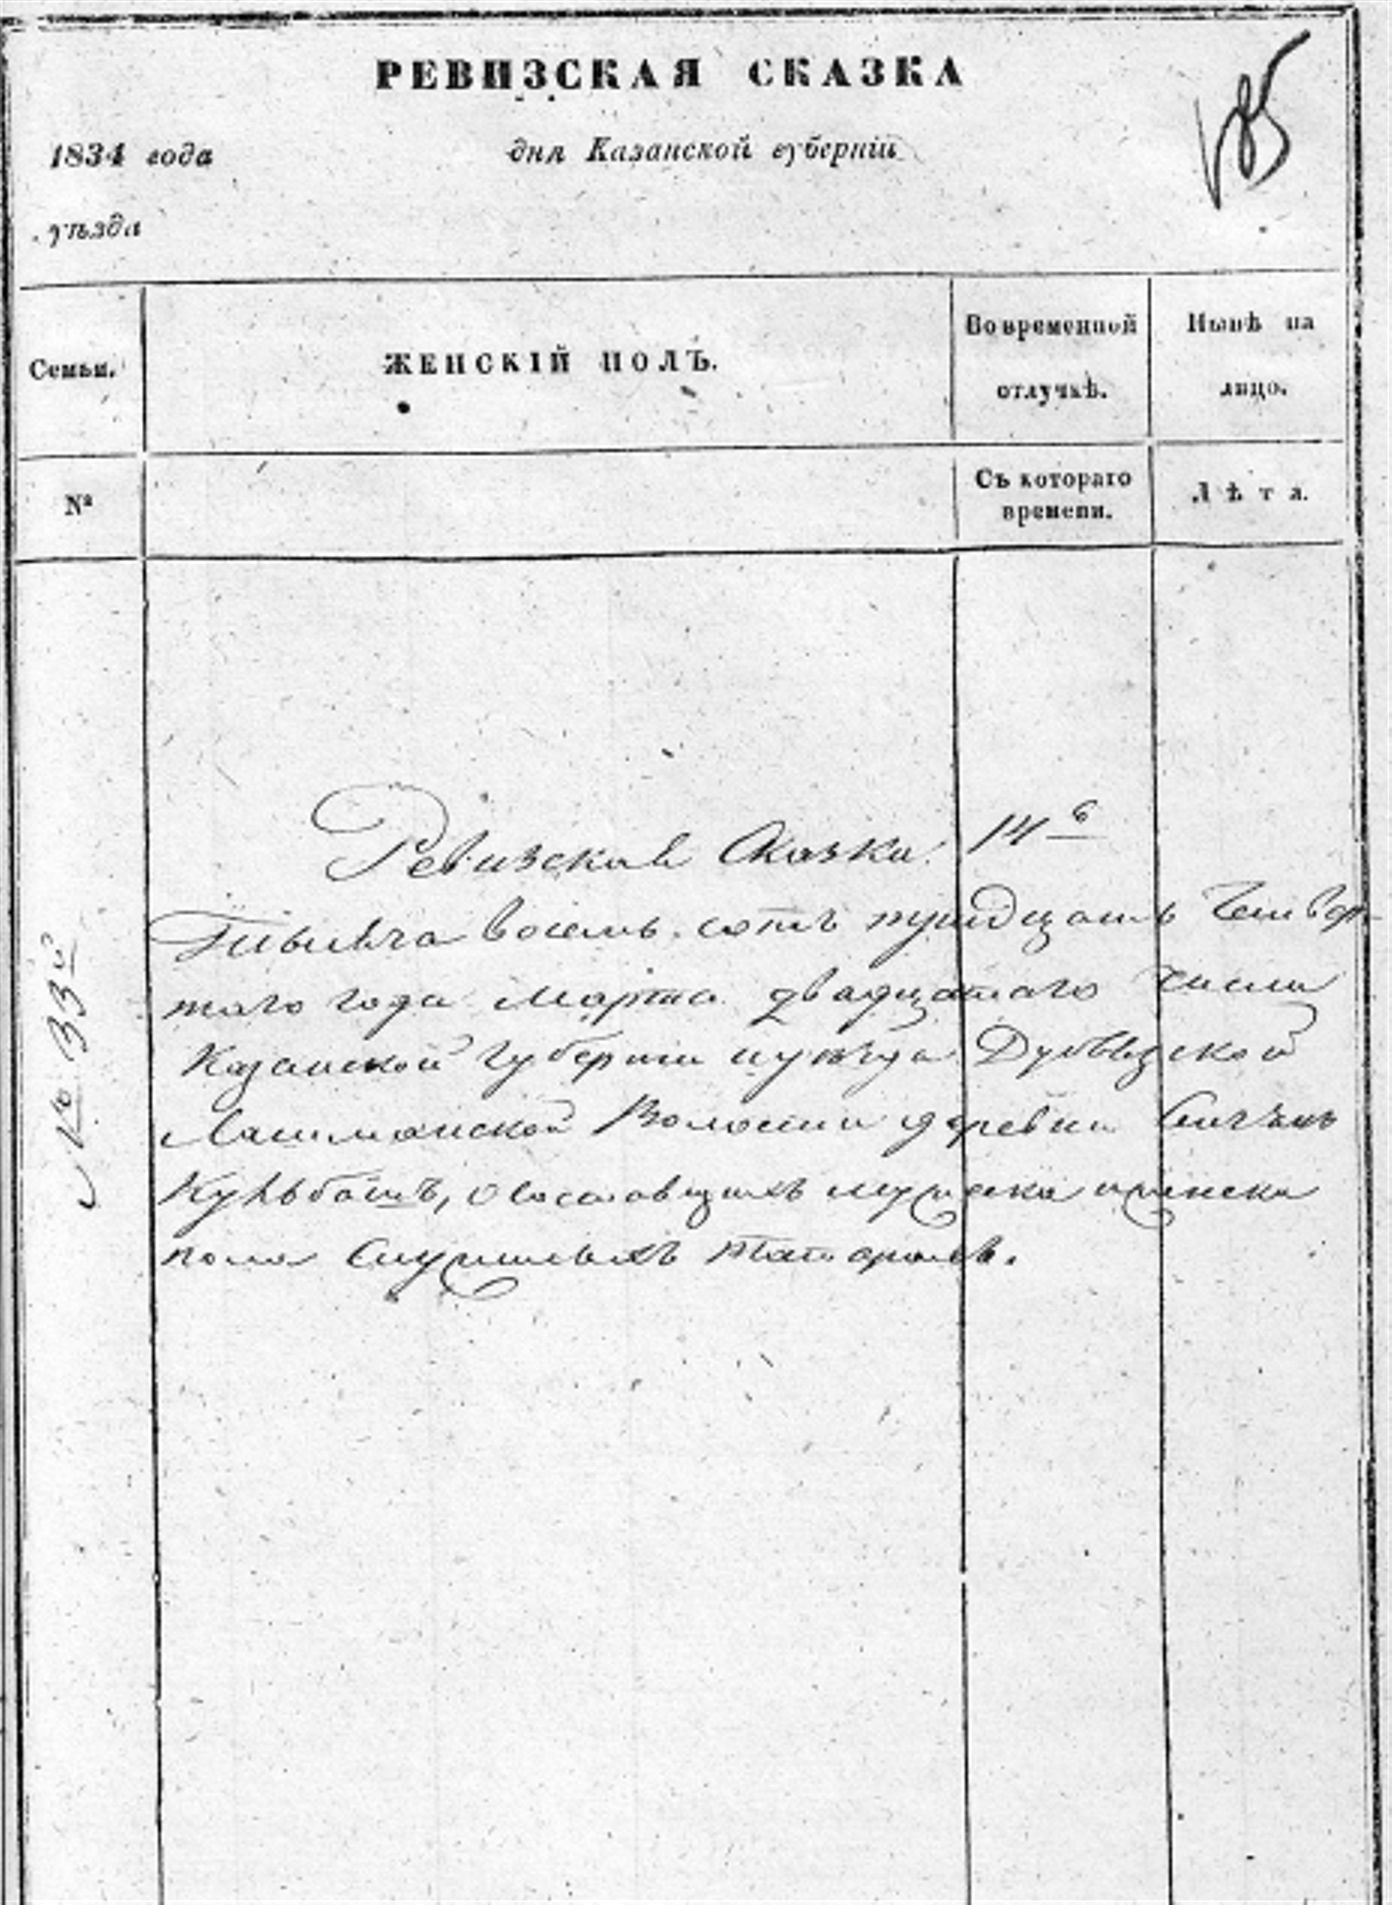 РЕВИЗСКАЯ СКАЗКА
185
1834 года дня Казанской губерніи
уѣзда
Семьи. ЖЕНСКІЙ ПОЛЪ. Во временной отлучкѣ. Нынѣ на лицо.
№ Съ котораго времени. Лѣта.
Ревизская Сказка 14
Тысяча восемь сотъ тридцать Четвер-
таго года Марта двадцатаго числа
Казанской Губерніи и уѣзда
Лашманской Волости деревни
Кульбашъ, о состоящихъ мужска и женска
пола Служилыхъ Татаръ.
№ 33й